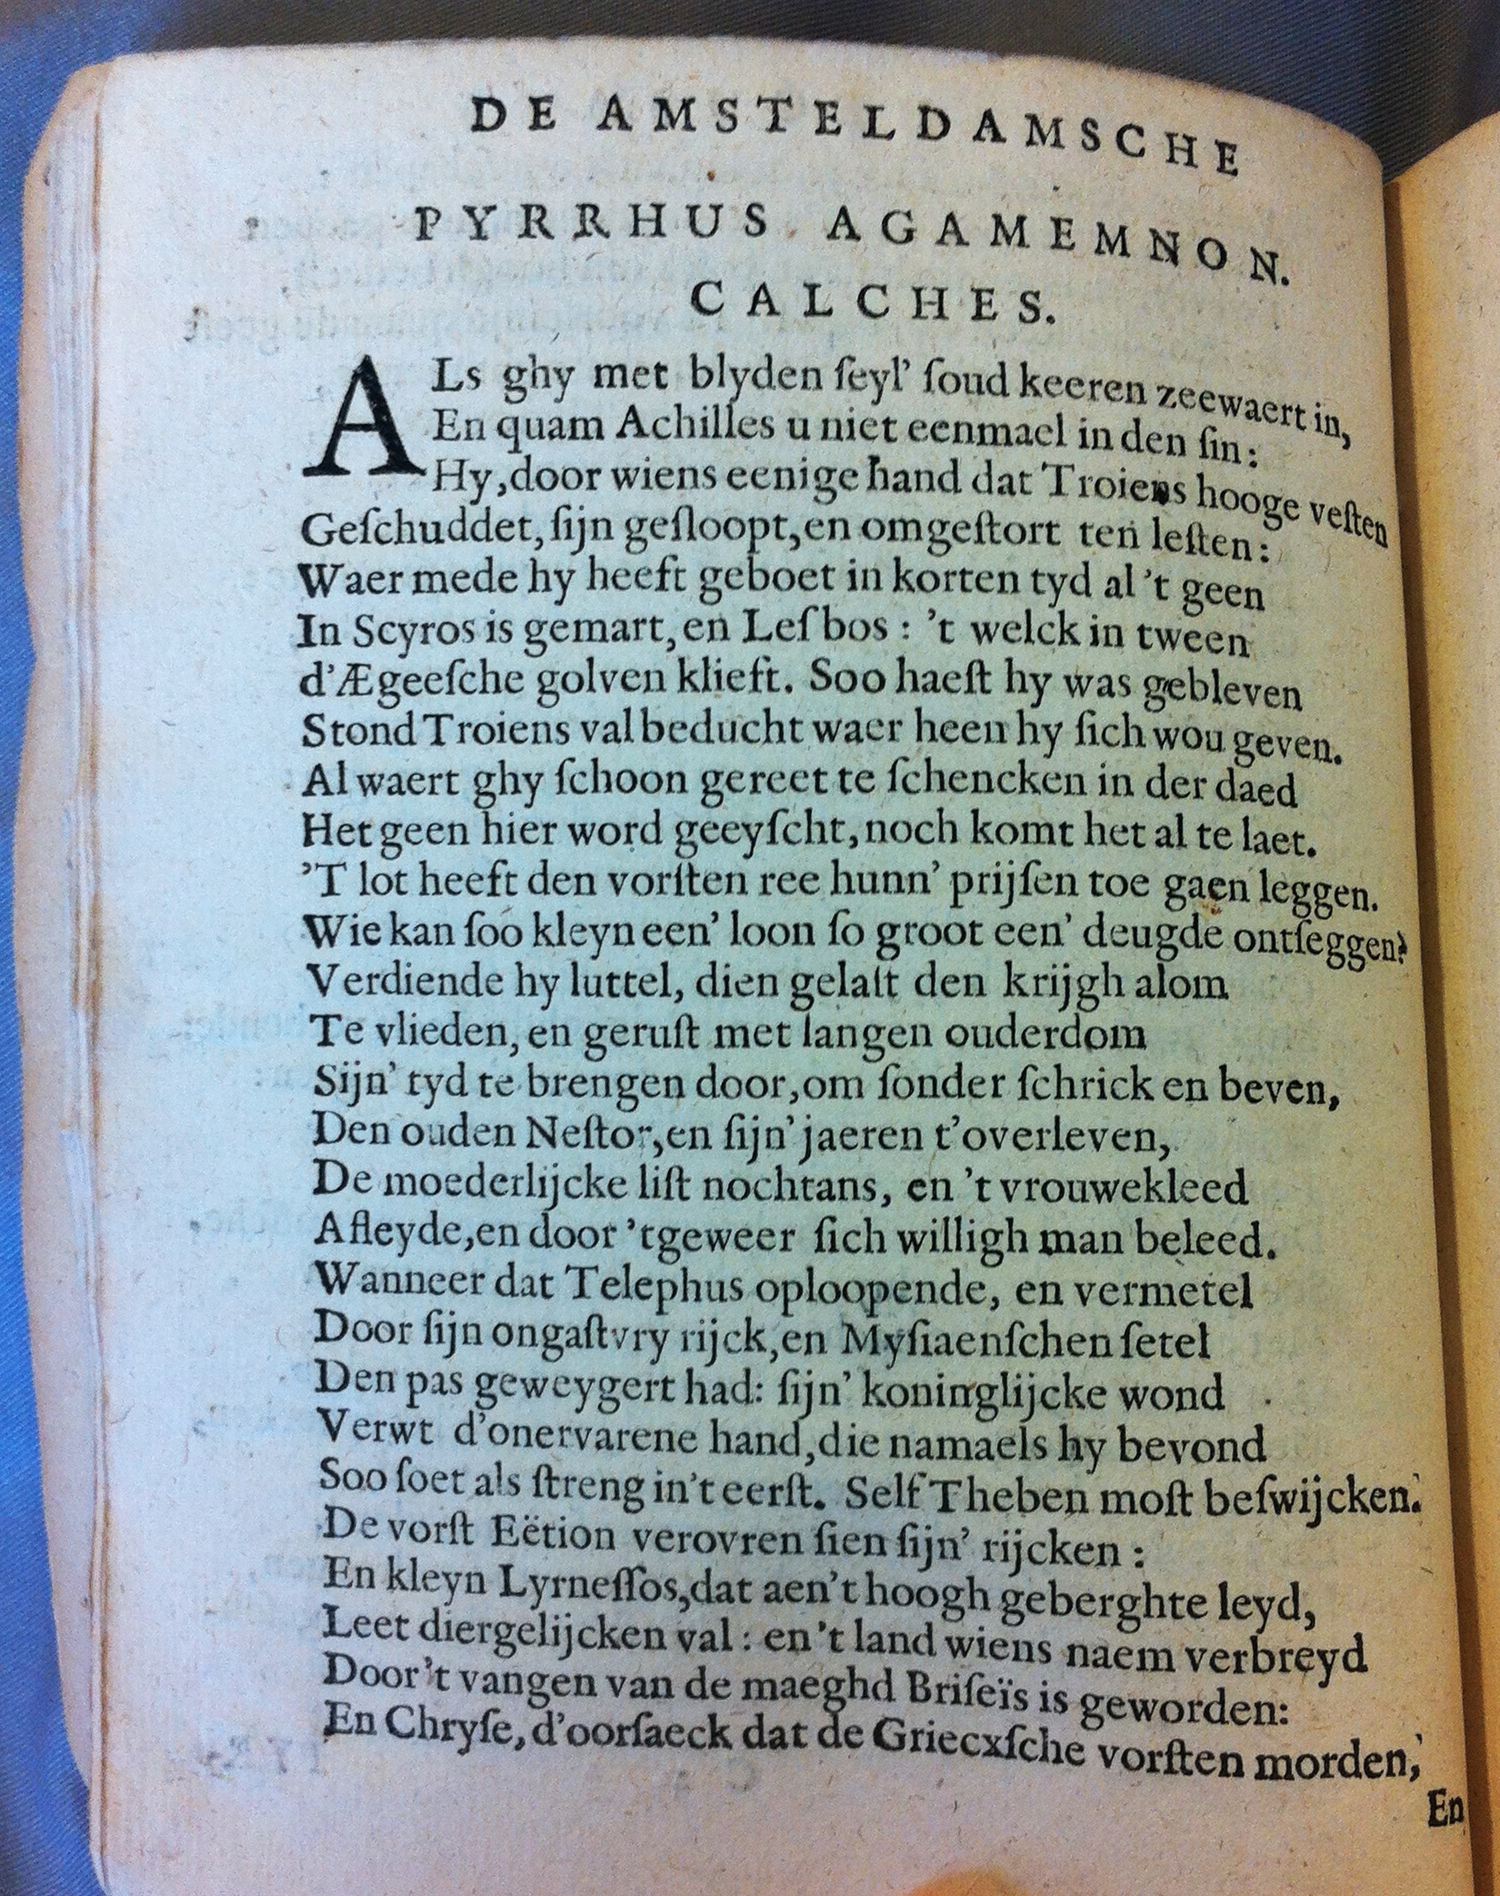 DE AMSTELDAMSCHE
PYRRHUS. AGAMEMNON.
CALCHES.
ALs ghy met blyden ſeyl’ ſoud keeren zeewaert in,
En quam Achilles u niet eenmael in den ſin:
Hy, door wiens eenige hand dat Troiens hooge veſten
Geſchuddet, ſijn geſloopt, en omgeſtort ten leſten:
Waer mede hy heeft geboet in korten tyd al ’t geen
In Scyros is gemart, en Leſbos : ’t welck in tween
d’Ægeeſche golven klieft. Soo haeſt hy was gebleven
Stond Troiens val beducht waer heen hy ſich wou geven.
Al waert ghy ſchoon gereet te ſchencken in der daed
Het geen hier word geeyſcht, noch komt het al te laet.
’T lot heeft den vorſten ree hunn’ prijſen toe gaen leggen.
Wie kan ſoo kleyn een’ loon ſo groot een’ deugde ontſeggen?
Verdiende hy luttel, dien gelaſt den krijgh alom
Te vlieden, en geruſt met langen ouderdom
Sijn’ tyd te brengen door, om ſonder ſchrick en beven,
Den ouden Neſtor, en ſijn’ jaeren t’overleven,
De moederlijcke liſt nochtans, en ’t vrouwekleed
Afleyde, en door ’tgeweer ſich willigh man beleed.
Wanneer dat Telephus oploopende, en vermetel
Door ſijn ongaſtvry rijck, en Myſiaenſchen ſetel
Den pas geweygert had: ſijn’ koninglijcke wond
Verwt d’onervarene hand, die namaels hy bevond
Soo ſoet als ſtreng in’t eerſt. Self Theben moſt beſwijcken.
De vorſt Eëtion verovren ſien ſijn’ rijcken :
En kleyn Lyrneſſos, dat aen’t hoogh geberghte leyd,
Leet diergelijcken val : en ’t land wiens naem verbreyd
Door ’t vangen van de maeghd Briſeïs is geworden:
En Chryſe, d’oorſaeck dat de Griecxſche vorſten morden,
En